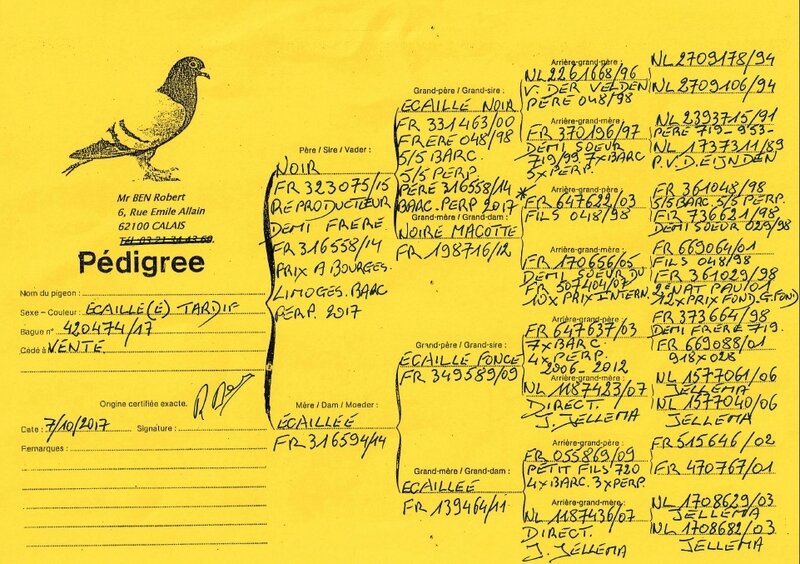 Mr BEN Robert
6, Rue Emile Allain
62100 CALAIS
Tél. 03 21 34 43 60
Pédigree
Nom du pigeon :
Sexe - Couleur : ECAILLE(E) TARDIF
Bague n° 420474/17
Cédé à VENTE
Origine certifiée exacte.
Date : 7/10/2017 Signature :
Remarques :
Père / Sire / Vader :
NOIR
FR 323075/15
REPRODUCTEUR
DEMI FRERE
FR 316558/14
PRIX A BOURGES.
LIMOGES. BARC
PERP. 2017
Mère / Dam / Moeder :
ÉCAILLÉE
FR 316594/14
Grand-père / Grand-sire :
ECAILLE NOIR
FR 331463/00
FRERE 048/98
5/5 BARC.
5/5 PERP.
PERE 316558/14
BARC. PERP 2017 *
Grand-mère / Grand-dam :
NOIRE MACOTTE
FR 198716/12
Grand-père / Grand-sire :
ECAILLE FONCE
FR 349589/09
Grand-mère / Grand-dam :
ECAILLEE
FR 139464/11
Arrière-grand-père :
NL 2261668/96
V. DER VELDEN
PERE 048/98
Arrière-grand-mère :
FR 370196/97
DEMI SOEUR
719/99 7xBARC
5xPERP.
Arrière-grand-père :
FR 647622/03
FILS 048/98
Arrière-grand-mère :
FR 170656/05
DEMI SOEUR DU
FR 507404/07
10xPRIX INTERN.
Arrière-grand-père :
FR 647637/03
7xBARC.
4xPERP.
2006-2012
Arrière-grand-mère :
NL 1187423/07
DIRECT.
J. JELLEMA
Arrière-grand-père :
FR 055869/09
PETIT FILS 720
4xBARC. 3xPERP.
Arrière-grand-mère :
NL 1187436/07
DIRECT.
J. JELLEMA
NL 2709178/94
NL 2709106/94
NL 2393715/91
PERE 719-953-
NL 1737311/89
P.V.D. EIJNDEN
FR 361048/98
5/5 BARC. 5/5 PERP.
FR 736621/98
DEMI SOEUR 029/98
FR 669064/01
FILS 048/98
FR 361029/98
2eNAT PAU/01
12xPRIX FOND, G. FOND
FR 373664/98
DEMI FRERE 719.
FR 669088/01
918x028
NL 1577061/06
JELLEMA
NL 1577040/06
JELLEMA
FR 515646/02
FR 470767/01
NL 1708629/03
JELLEMA
NL 1708682/03
JELLEMA